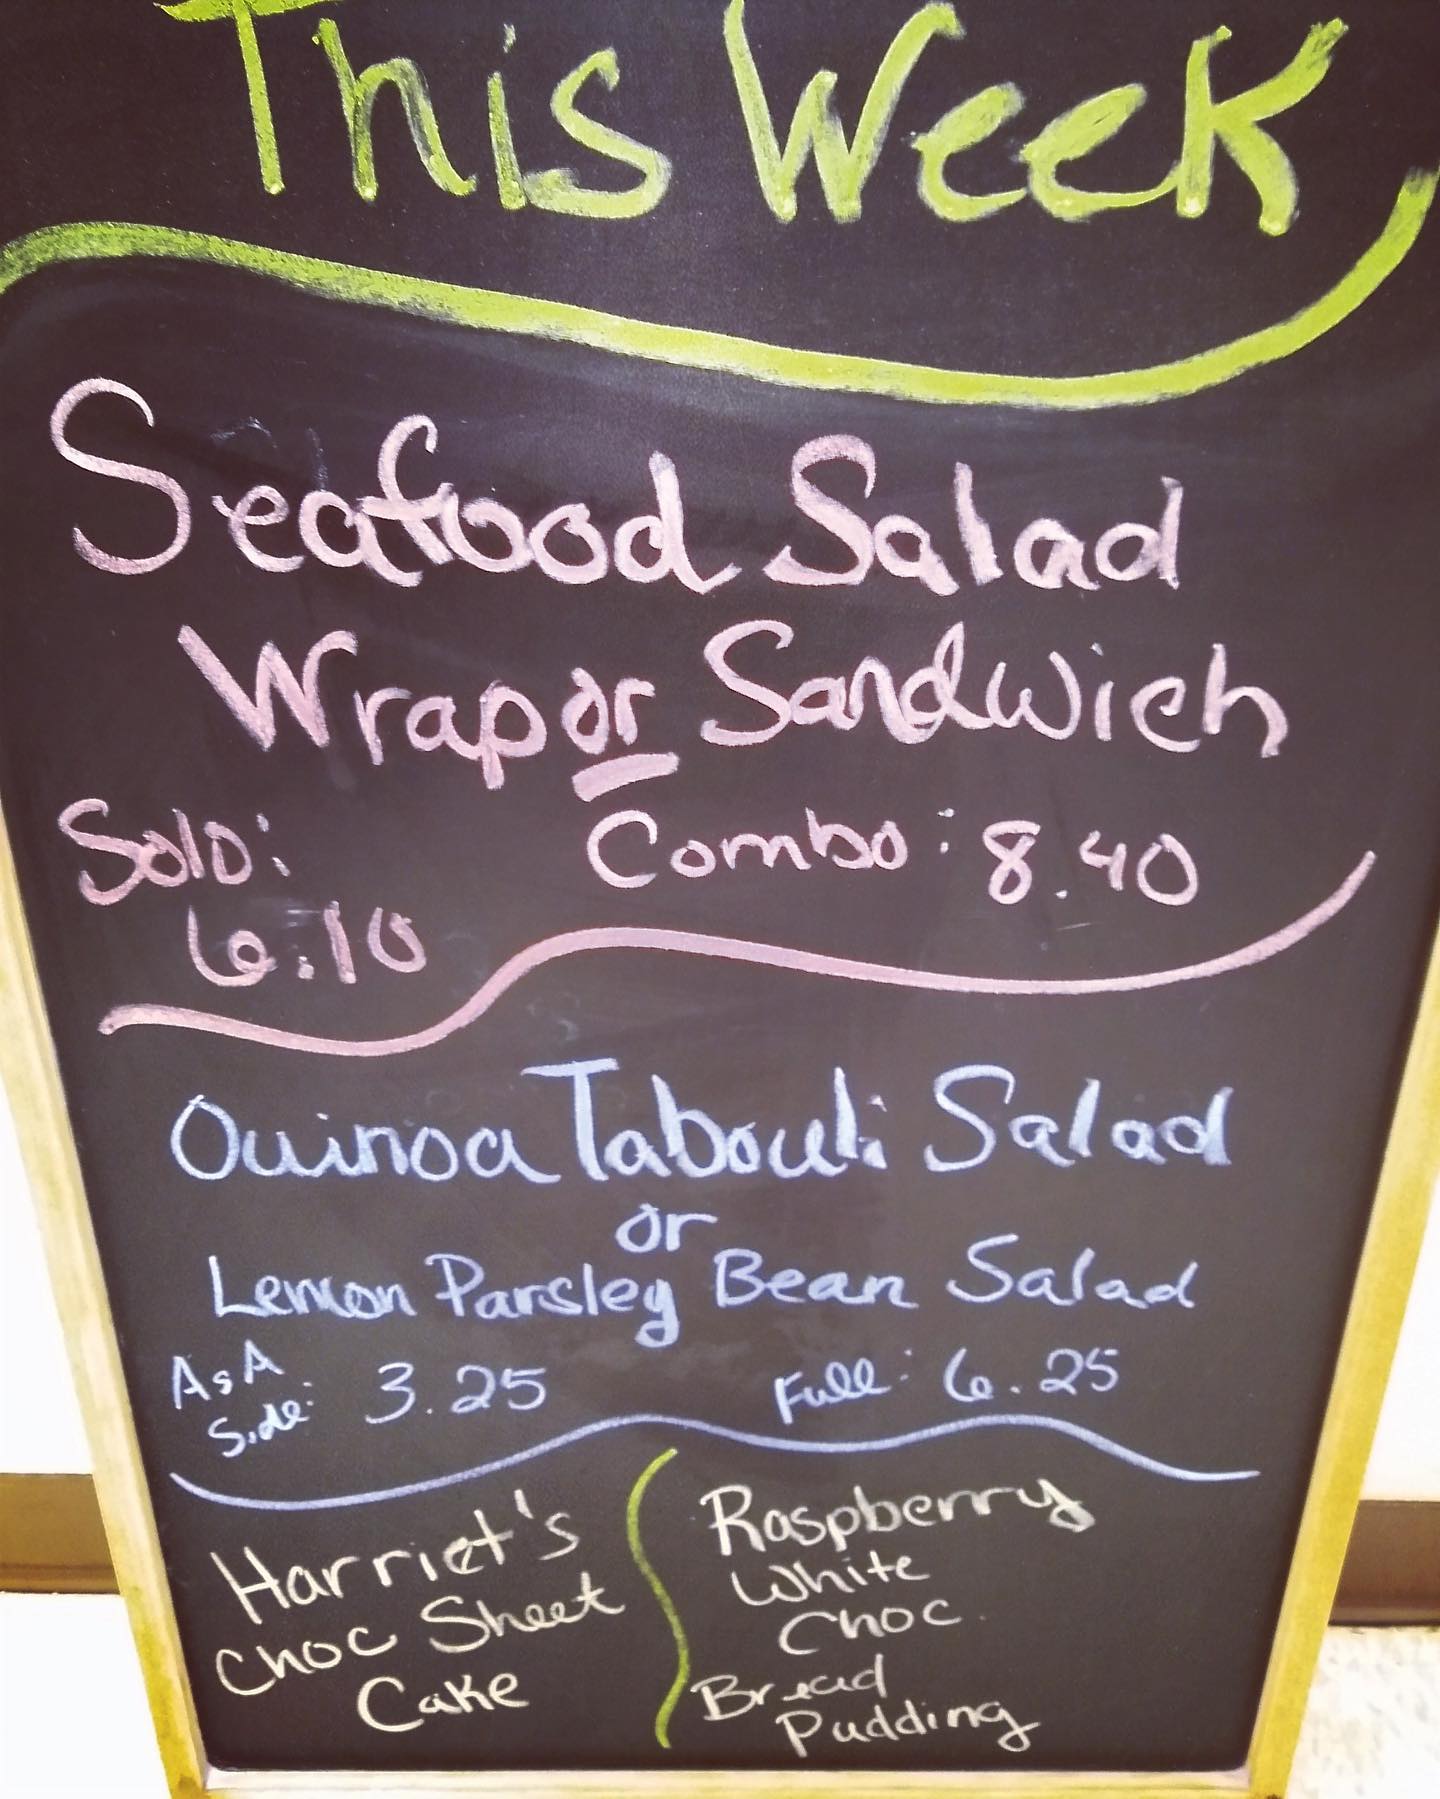 This Week
Seafood Salad
Wrap or Sandwich
Solo: Combo: 8.40
6.10
Quinoa Tabouli Salad
or
Lemon Parsley Bean Salad
As A
Side: 3.25 Full: 6.25
Harriet's
Choc Sheet
Cake
Raspberry
White
Choc.
Bread
Pudding